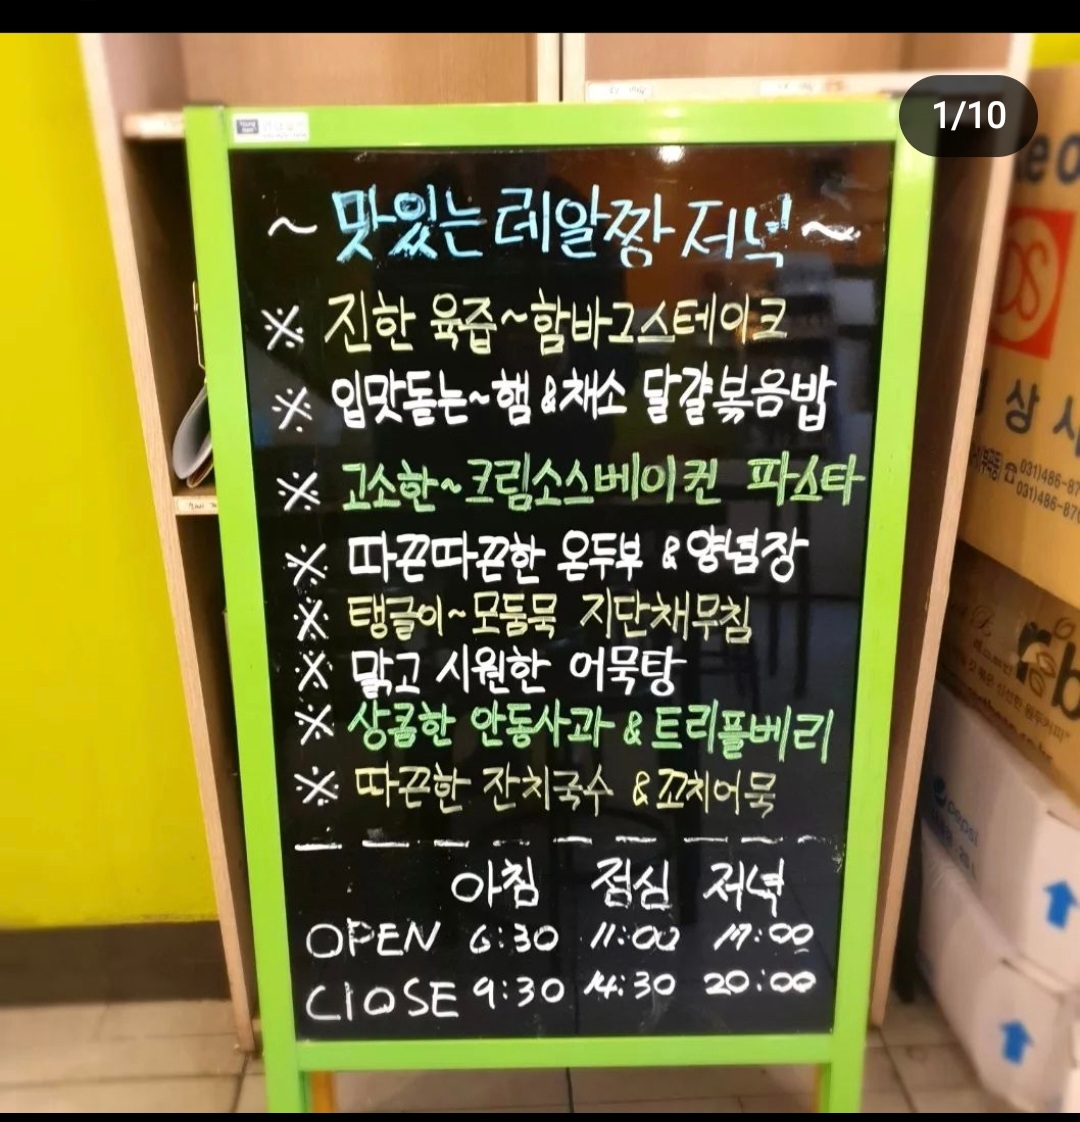 1/10
~ 맛있는 레알짱 저녁 ~
※ 진한 육즙~함바그스테이크
※ 입맛돌는~햄&채소 달걀볶음밥
※ 고소한~크림소스베이컨 파스타
※ 따끈따끈한 온두부 & 양념장
※ 탱글이~모둠묵 지단채무침
※ 맑고 시원한 어묵탕
※ 상콤한 안동사과 & 트리플베리
※ 따끈한 잔치국수 & 꼬치어묵
아침 점심 저녁
OPEN 6:30 11:00 17:00
ClOSE 9:30 14:30 20:00
상
031)486-87
031)486-876
pepsi